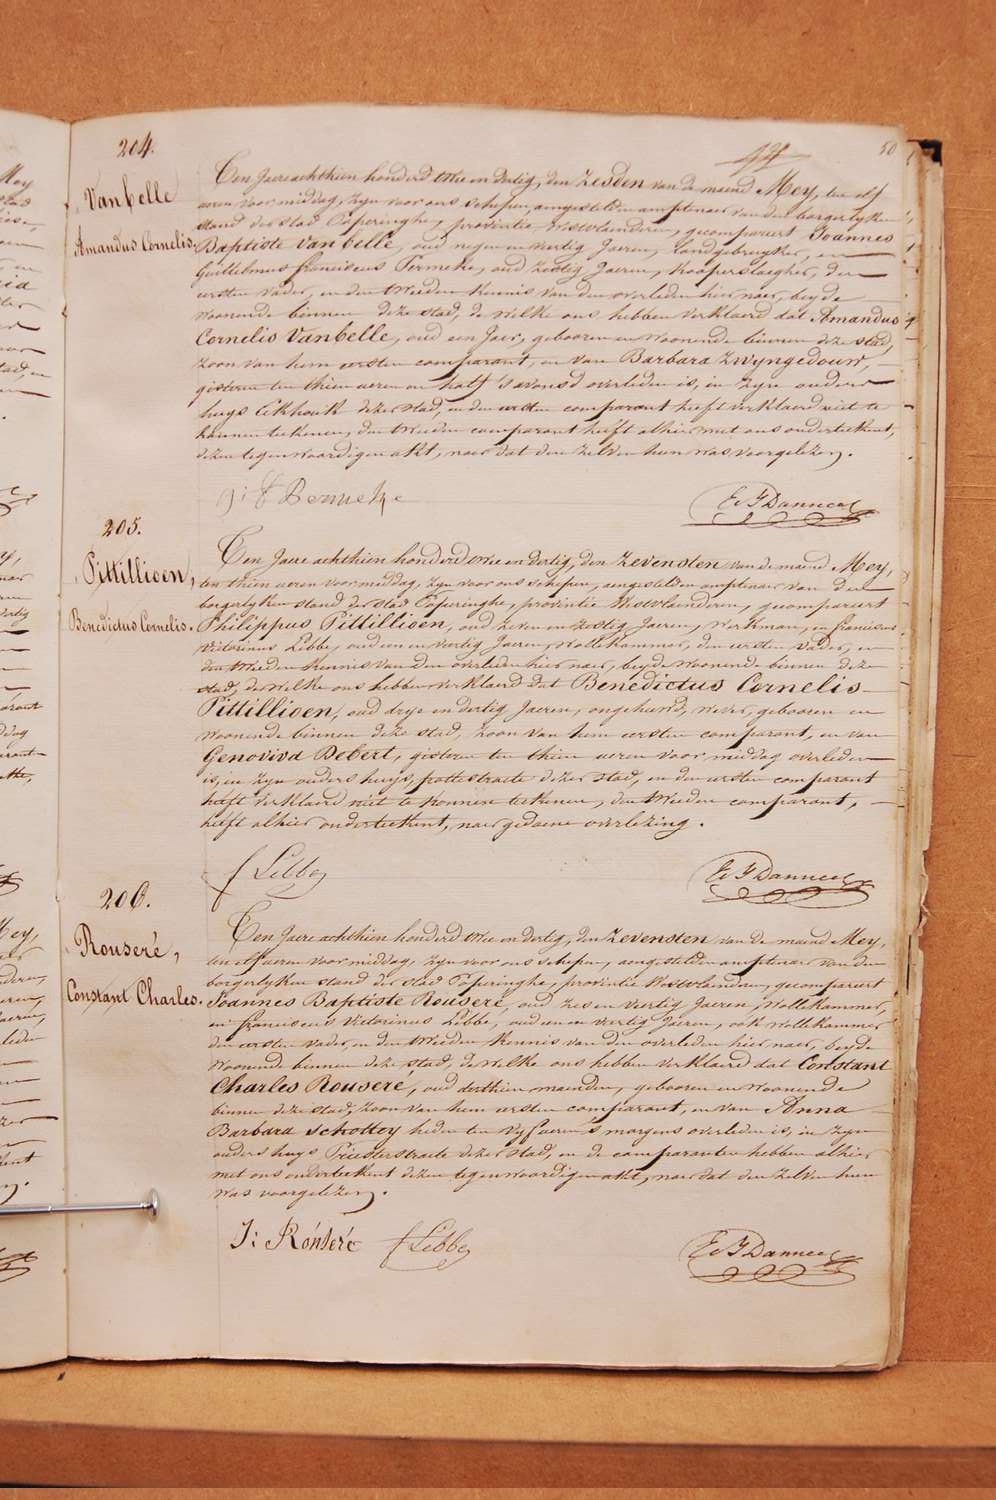 204.
50
Vanbelle
Amandus Cornelis.
Ten Jaere achthien honderd twee en dertig, den Zesden van de maend Mey, ten elf
ueren voor middag, zyn voor ons schepen, aengestelden amptenaer van den borgerlyken
stand der stad Poperinghe, provintie Westvlaenderen, gecompareert Joannes
Baptiste Vanbelle, oud negen en veertig Jaeren, landgebruyker, en
Guillelmus Franciscus Permeke, oud zestig Jaeren, kooperslaegher, den
eersten vader, en den tweeden kennis van den overleden hier naer, beyde
woonende binnen deze stad, de welke ons hebben verklaerd dat Amandus
Cornelis Vanbelle, oud een Jaer, gebooren en woonende binnen deze stad,
zoon van hem eersten comparant, en van Barbara Zwyngedouw,
gisteren ten thien ueren en half 's avonds overleden is, in zyn ouders
huys Eekhoutk dezer stad, en den eersten comparant heeft verklaerd niet te
konnen teekenen, den tweeden comparant heeft alhier met ons onderteekent,
dezen tegenwoordigen akt, naer dat den zelven hun was voorgelezen.
205.
Pittillioen,
Benedictus Cornelis.
Ten Jaere achthien honderd twee en dertig, den Zevensten van de maend Mey,
ten thien ueren voor middag, zyn voor ons schepen, aengestelden amptenaer van den
borgerlyken stand der stad Poperinghe, provintie Westvlaenderen, gecompareert
Philippus Pittillioen, oud zeven en zestig Jaeren, werkman, en Franciscus
Victorinus Lebbe, oud een en veertig Jaeren, wollekammer, den eersten vader, en
den tweeden kennis van den overleden hier naer, beyde woonende binnen deze
stad, de welke ons hebben verklaerd dat Benedictus Cornelis
Pittillioen, oud drye en dertig Jaeren, ongehuwd, wever, gebooren en
woonende binnen deze stad, zoon van hem eersten comparant, en van
Genoviva Debert, gisteren ten thien ueren voor middag overleden
is, in zyn ouders huys, pottestraete dezer stad, en den eersten comparant
heeft verklaerd niet te konnen teekenen, den tweeden comparant,
heeft alhier onderteekent, naer gedaene overlezing.
f Lebbe
206.
Rouseré,
Constant Charles.
Ten Jaere achthien honderd twee en dertig, den Zevensten van de maend Mey,
ten elf ueren voor middag, zyn voor ons schepen, aengestelden amptenaer van den
borgerlyken stand der stad Poperinghe, provintie Westvlaenderen, gecompareert
Joannes Baptiste Rouseré, oud zes en veertig Jaeren, wollekammer,
en Franciscus Victorinus Lebbe, oud een en veertig Jaeren, ook wollekammer
den eersten vader, en den tweeden kennis van den overleden hier naer, beyde
woonende binnen deze stad, de welke ons hebben verklaerd dat Constant
Charles Rouseré, oud derthien maenden, gebooren en woonende
binnen deze stad, zoon van hem eersten comparant, en van Anna
Barbara Schottey heden ten vyf ueren 's morgens overleden is, in zyn
ouders huys Priesterstraete dezer stad, en de comparanten hebben alhier
met ons onderteekent dezen tegenwoordigen akt, naer dat den zelven hun
was voorgelezen.
J: Rouseré f Lebbe